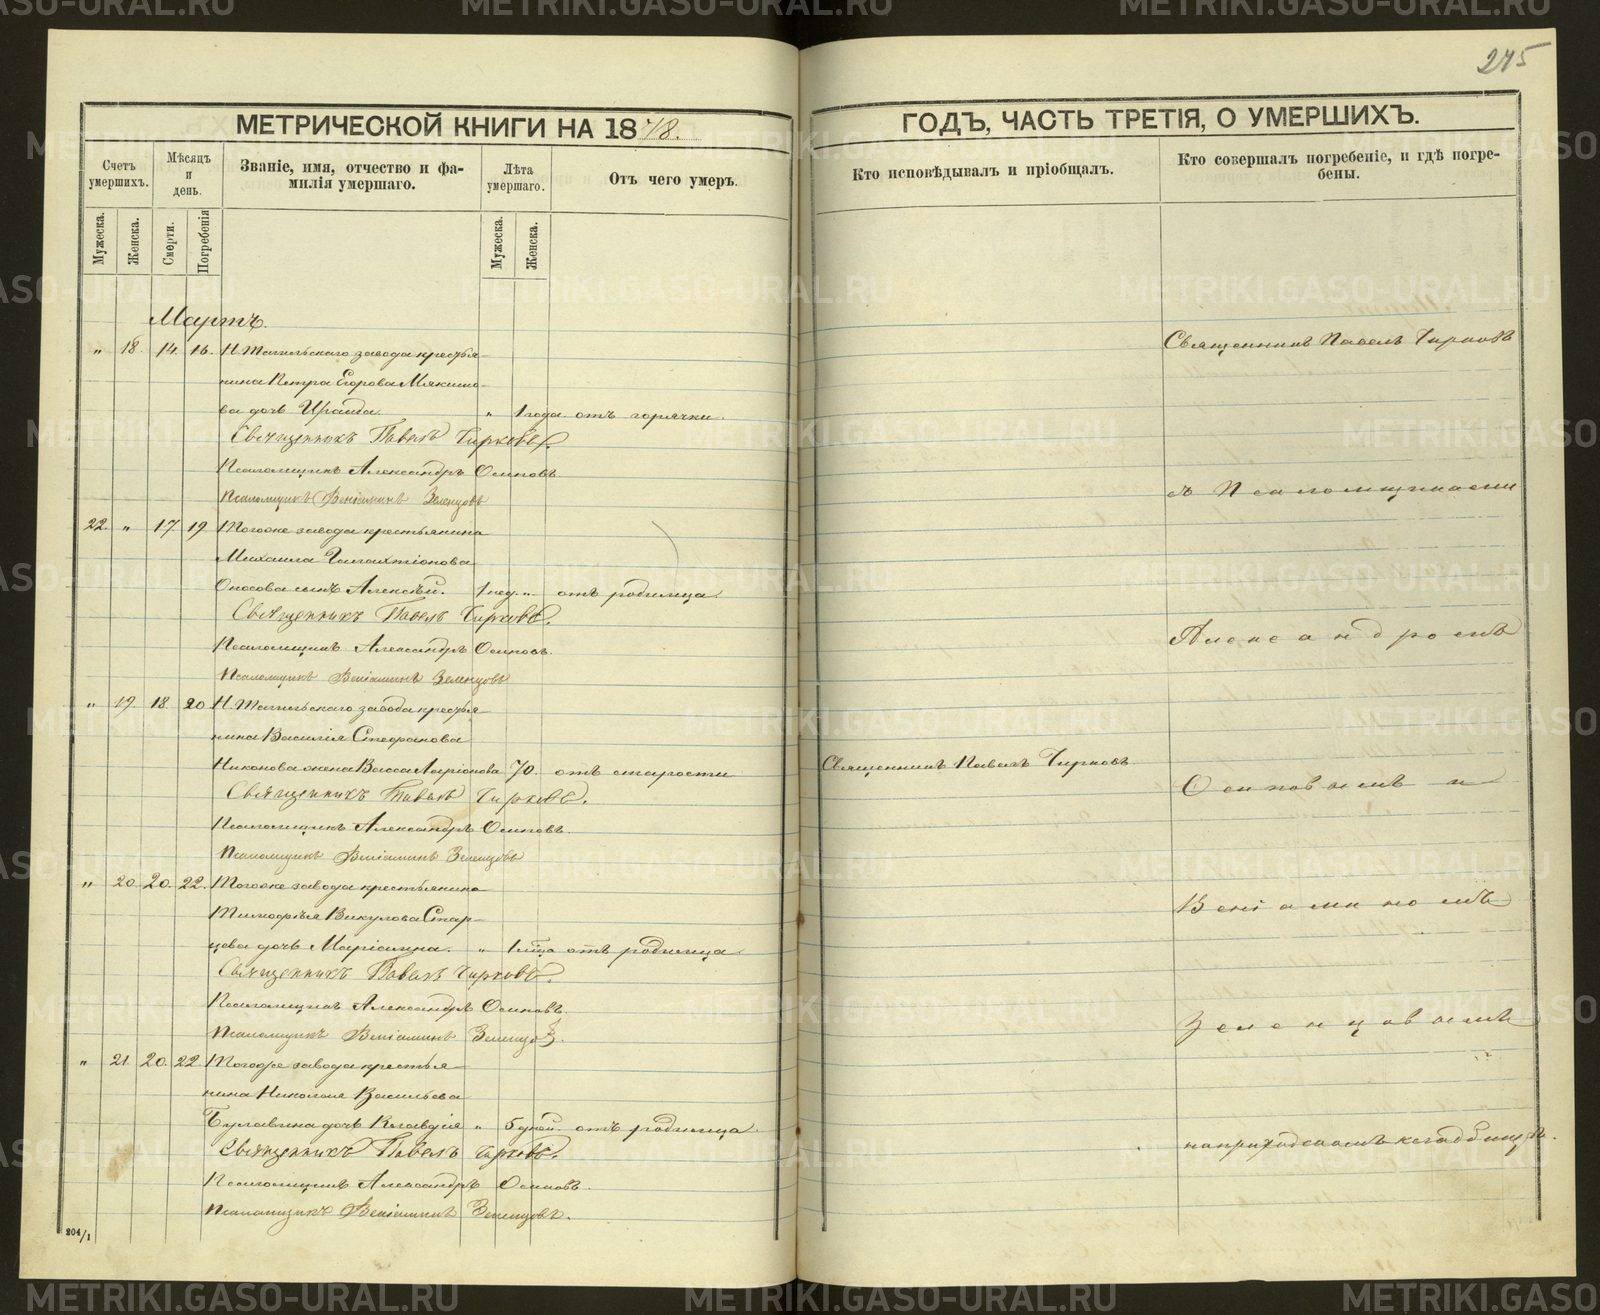 275
МЕТРИЧЕСКОЙ КНИГИ НА 1878.
Счетъ умершихъ.
Мѣсяцъ и день.
Званіе, имя, отчество и фамилія умершаго.
Лѣта умершаго.
Отъ чего умеръ.
Мужеска.
Женска.
Смерти.
Погребенія
Мужеска.
Женска.
Мартъ.
" 18. 14. 16. Н. Тагильскаго завода крестья
нина Петра Егорова Мякишо-
ва дочь Ираида. " 1 года отъ горячки.
Священникъ Павелъ Чирковъ.
Псаломщикъ Александръ Осиповъ
Псаломщикъ Веніаминъ Зеленцовъ
22. " 17 19 Тогоже завода крестьянина
Михаила
сынъ Алексѣй. 1 нед. " отъ родимца.
Священникъ Павелъ Чирковъ.
Псаломщикъ Александръ Осиповъ.
Псаломщикъ Веніаминъ Зеленцовъ
" 19. 18. 20 Н. Тагильскаго завода крестья
нина Василія Стефанова
Никонова жена Васса Ларіонова 70. отъ старости
Священникъ Павелъ Чирковъ.
Псаломщикъ Александръ Осиповъ.
Псаломщикъ Веніаминъ Зеленцовъ
" 20. 20. 22. Тогоже завода крестьянина
Тимофѣя Викулова Стар-
цева дочь Маріамна. " 1 мѣца отъ родимца
Священникъ Павелъ Чирковъ.
Псаломщикъ Александръ Осиповъ.
Псаломщикъ Веніаминъ Зеленцовъ.
" 21. 20. 22 Тогоже завода крестья-
нина Николая Васильева
Булавина дочь Клавдія " 5 дней отъ родимца.
Священникъ Павелъ Чирковъ.
Псаломщикъ Александръ Осиповъ.
Псаломщикъ Веніаминъ Зеленцовъ.
204/1
ГОДЪ, ЧАСТЬ ТРЕТІЯ, О УМЕРШИХЪ.
Кто исповѣдывалъ и пріобщалъ.
Кто совершалъ погребеніе, и гдѣ погребены.
Священникъ Павелъ Чирковъ
съ Псаломщиками
Александромъ
Священникъ Павелъ Чирковъ
Осиповымъ и
Веніаминомъ
Зеленцовымъ
на приходскомъ кладбищѣ.
METRIKI.GASO-URAL.RU